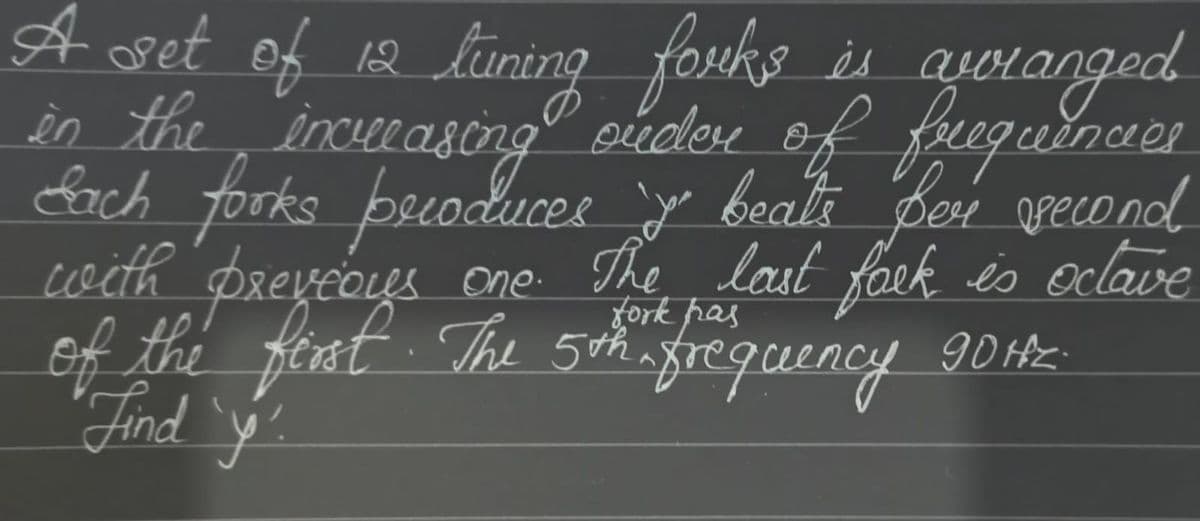 A set of 12 tuning forks is arranged
in the increasing order of frequencies
Each forks produces 'y' beats per second
with previous one. The last fork is octave
of the first. The 5th fork has frequency 90 Hz.
Find 'y'.